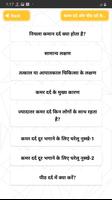 1:17
Back
कमर दर्द और पीठ दर्द से..
निचला कमान दर्द क्या होता है?
सामान्य लक्षण
तत्काल या आपातकाल चिकित्सा के लक्षण
कमर दर्द के मुख्य कारण
ज्यादातर कमर दर्द किन लोगों के साथ रहता है?
कमर दर्द दूर भगाने के लिए घरेलु नुस्खे-1
कमर दर्द दूर भगाने के लिए घरेलु नुस्खे-2
पीठ दर्द में क्यों?